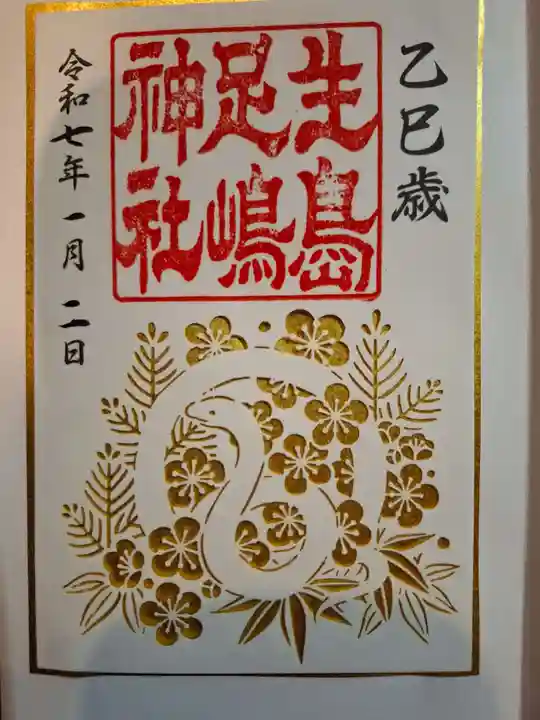 乙巳歳
生島
足嶋
神社
令和七年一月二日